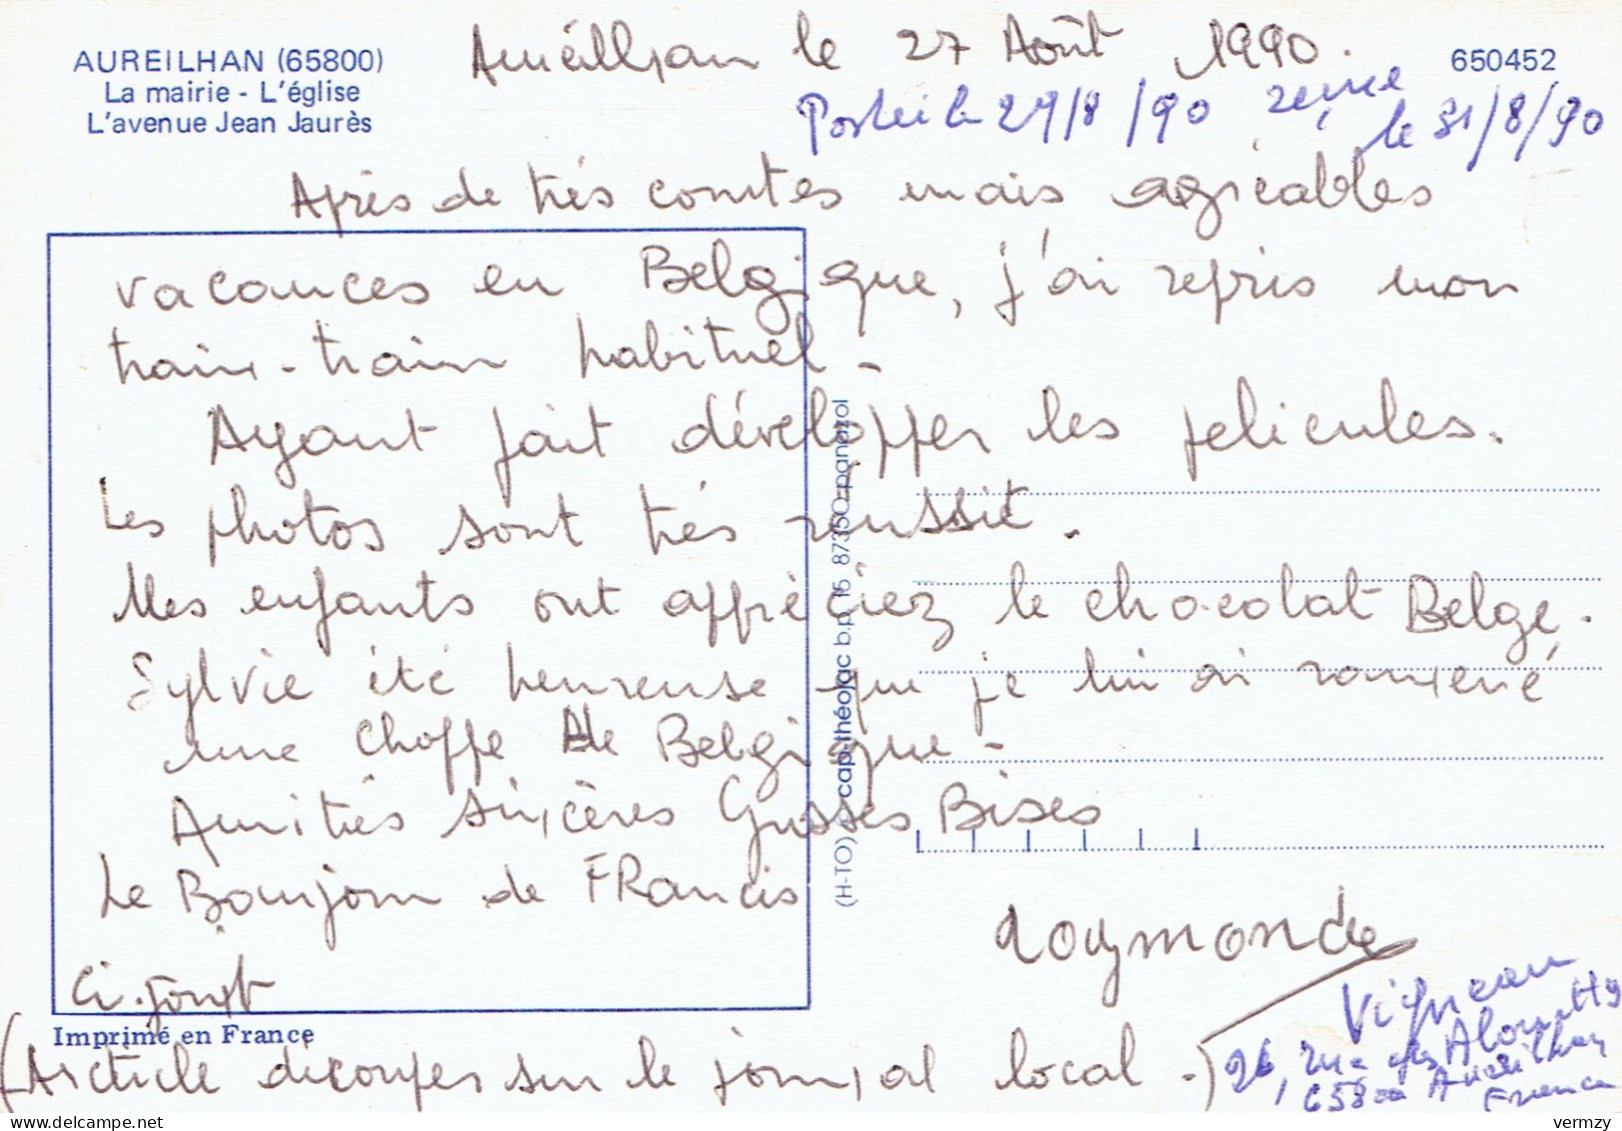 AUREILHAN (65800)
La mairie - L'église
L'avenue Jean Jaurès
Aureillhan le 27 Août 1990.
650452
Posteé le 29/8/90 reçue
le 31/8/90
Après de trés courtes mais agréables
vacances en Belgique, j'ai repris mon
train-train habituel -
Ayant fait développer les pelicules.
Les photos sont trés reussit.
Mes enfants ont apprèciez le chocolat Belge.
Sylvie été heureuse que je lui ai ramené
une choppe de Belgique -
Amitiés sincères Grosses Bises
Le Bonjour de FRancis
Raymonde
Ci-joint
(Article découper sur le journal local -)
Imprimé en France
(H-TO) cap-théojac b.p. 15 87350 panazol
Vigneau
26, rue des Alouettes
65800 Aureilhan
France
vermzy